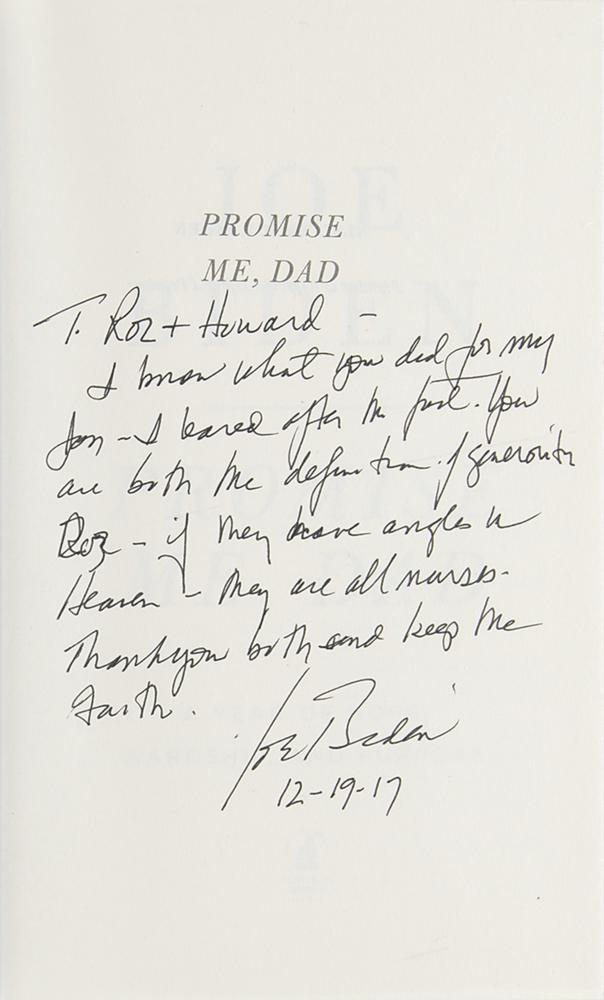 PROMISE
ME, DAD
T. Roz + Howard –
I know what you did for my
Son – I leared after the fact. You
are both the definition of generosity
Roz – if they have angles in
Heaven – they are all nurses.
Thank you both and keep the
Faith.
Joe Biden
12-19-17